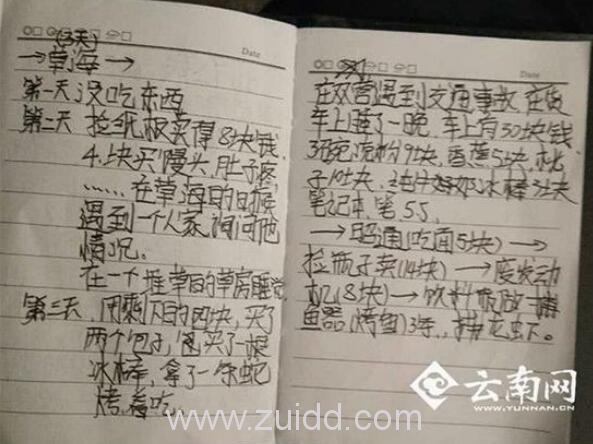 (3天)
→草海→
第一天 没吃东西
第二天 捡纸板买得8块钱
4块买馒头,肚子疼,
……在草海目的日接
遇到一个人家,询问他
情况。
在一个堆草目的草房睡觉
第三天.用剩下目的四块,买了
两个包子,买了一根
冰棒,拿了一条蛇
烤着吃。
Date
在双营遇到交通事故.在货
车上睡了一晚.车上有30块钱.
3碗凉粉9块,香蕉5块,桃
子10块.纯牛奶冰棒3块
笔记本.笔5.5.
→昭通(吃面5块)→
捡瓶子卖(14块)→废发动
机(8块)→饮料瓶做一捕
鱼器(烤鱼)3条,捕龙虾。
Date
云南网
WWW.YUNNAN.CN
www.zuidd.com